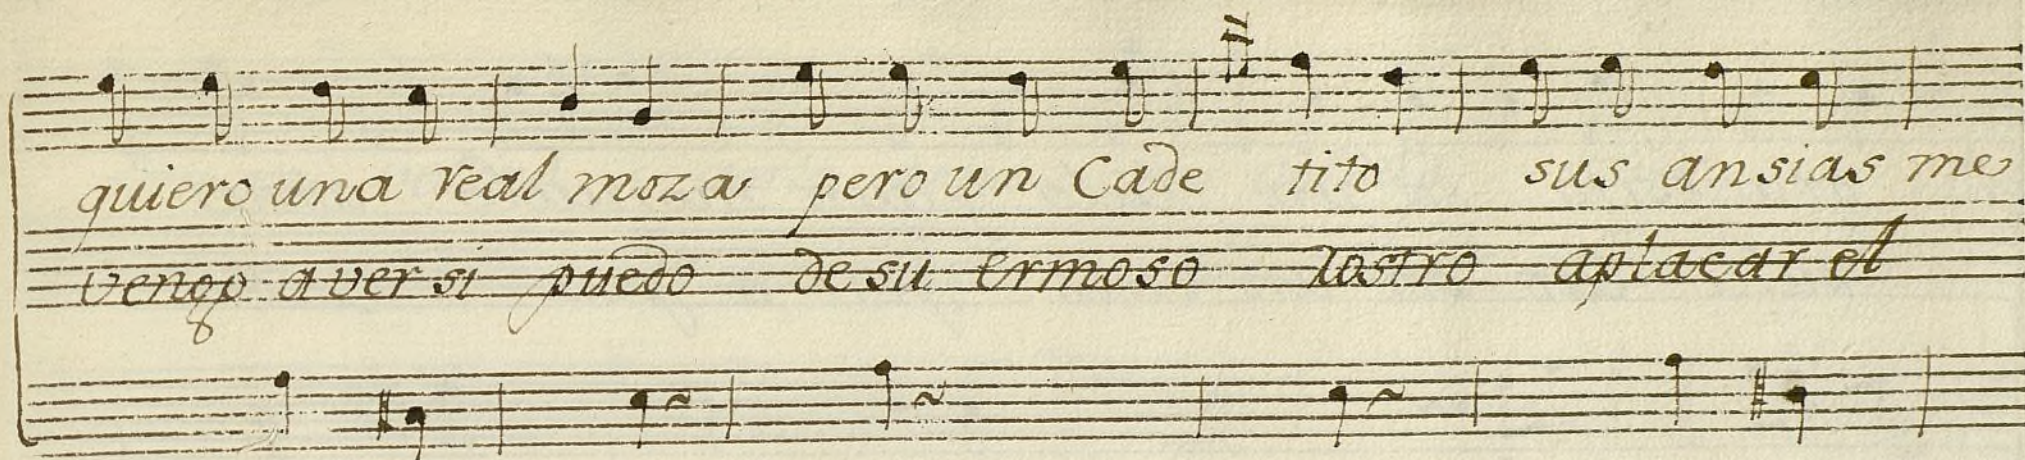 quiero una real moza pero un Cade tito sus ansias me
vengo a ver si puedo de su ermoso rostro aplacar el